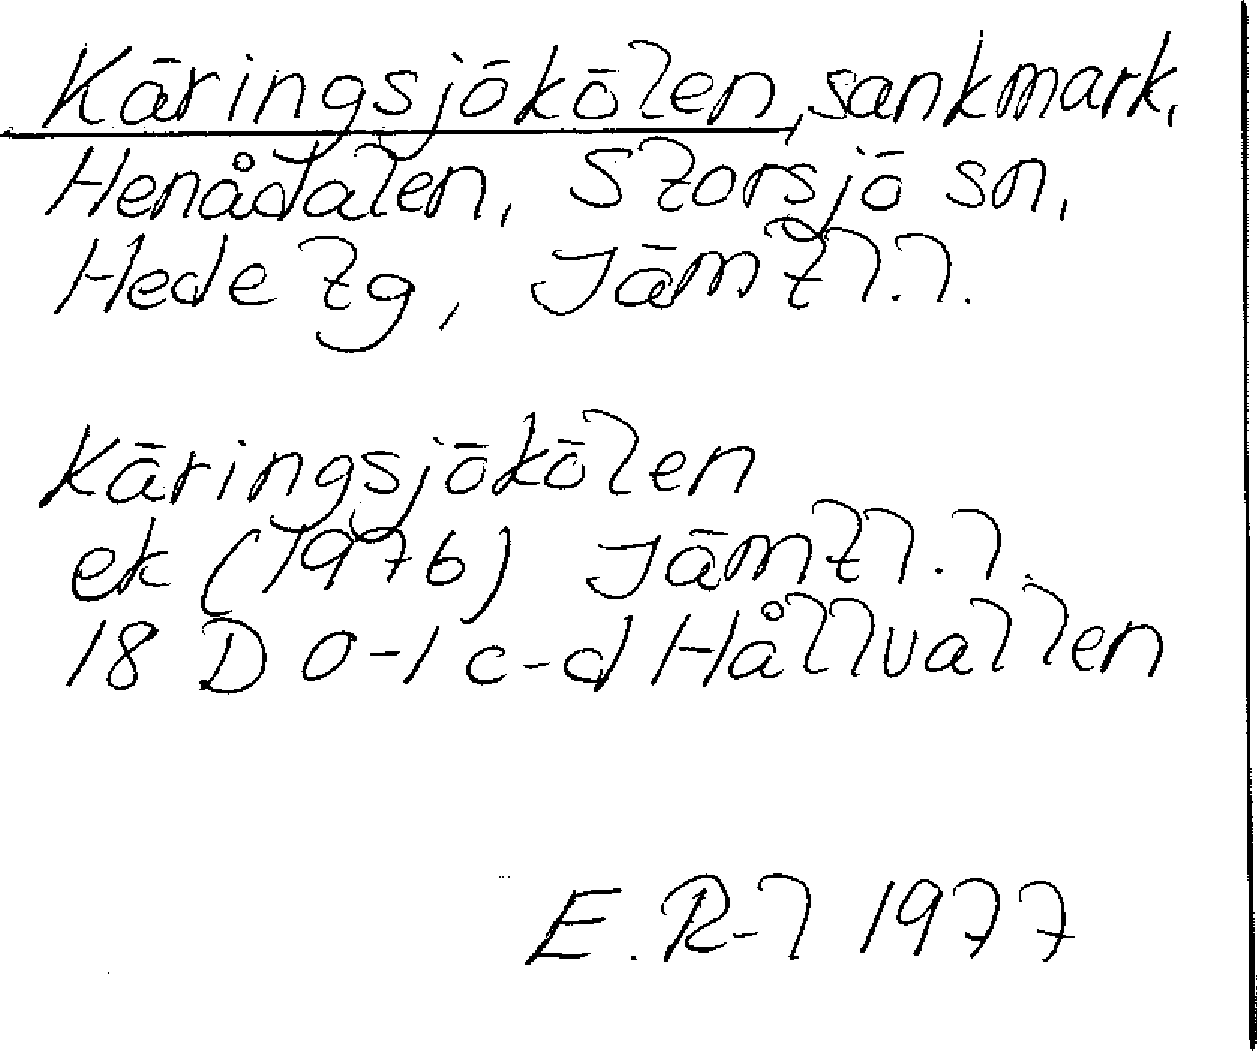 Käringsjökölen, sankmark,
Henådalen, Storsjö sn,
Hede tg, Jämtl.l.
Käringsjökölen
ek (1976) Jämtl.l.
18 D 0-1 c-d Hållvallen
E. R-l 1977